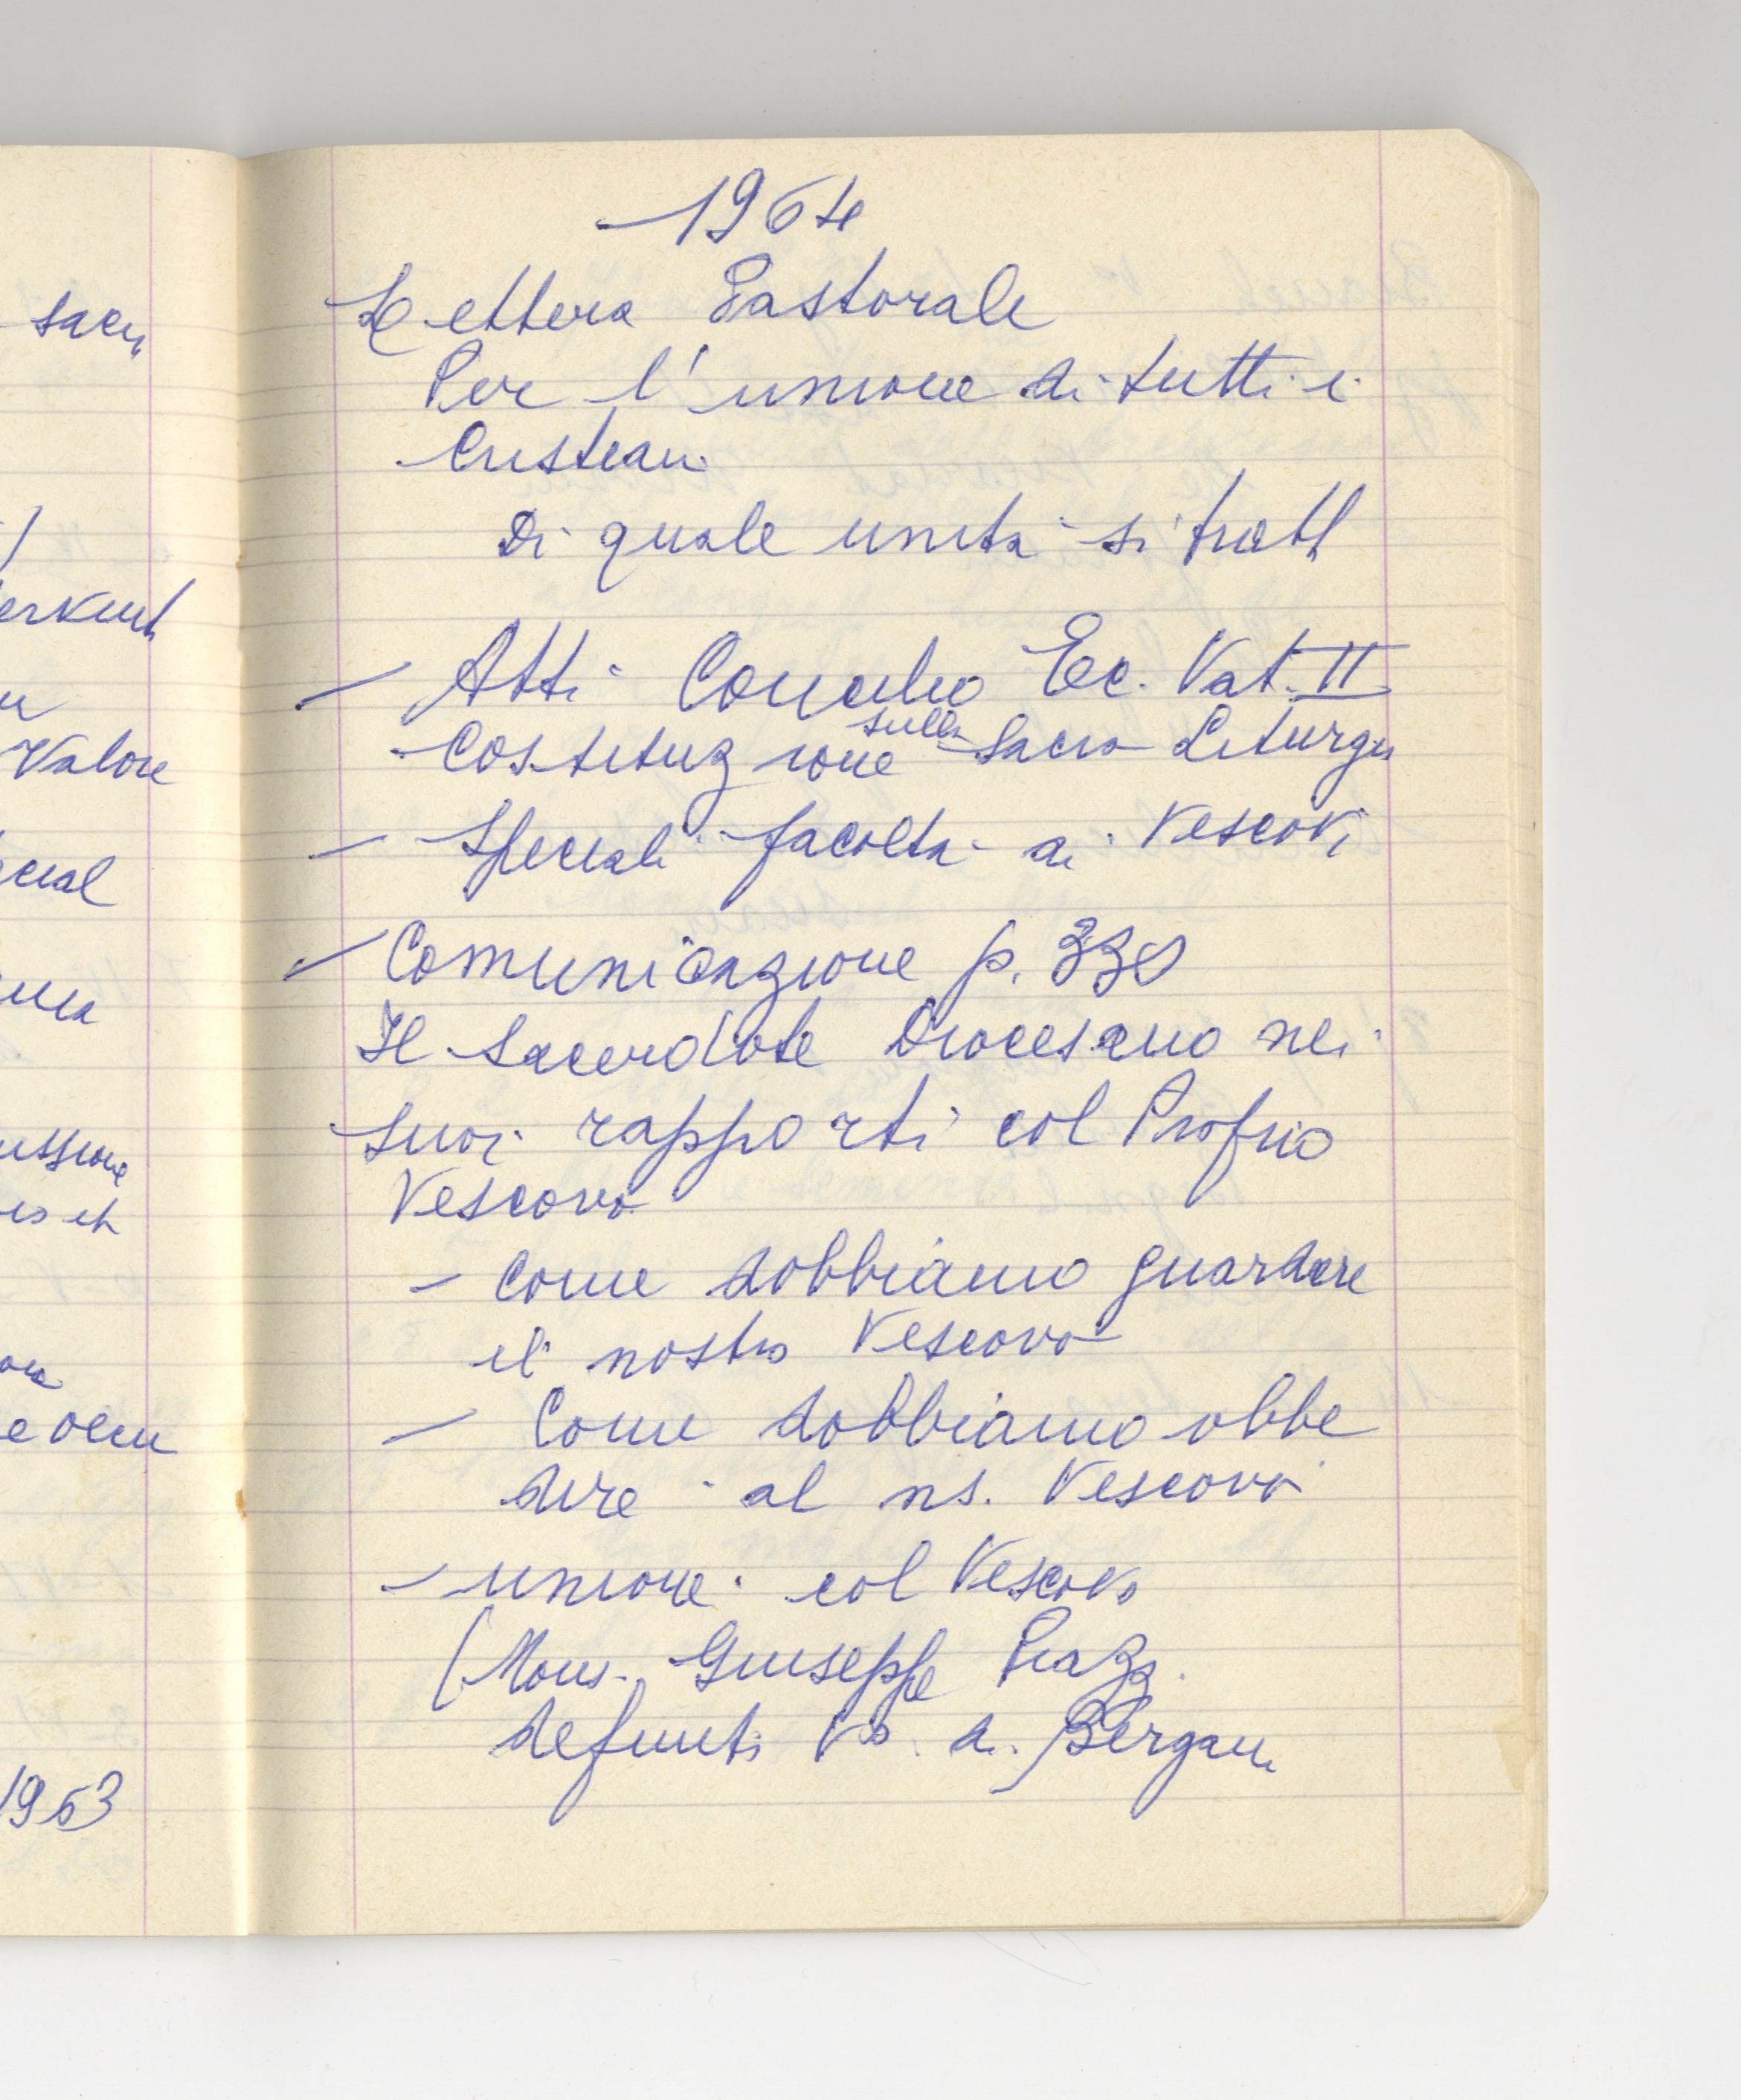 sacr
Valore
1963
1964
Lettera Pastorale
Per l'unione di tutti i
Cristiani
Di quale unità si tratt
- Atti Concilio Ec. Vat. II
Costituzione sulla Sacra Liturgia
- Speciali facoltà ai Vescovi
- Comunicazione p. 330
Il Sacerdote Diocesano nei
suoi rapporti col Proprio
Vescovo
- Come dobbiamo guardare
il nostro Vescovo
- Come dobbiamo obbe
dire al ns. Vescovo
- unione col Vescovo
(Mons. Giuseppe Piazz.
defunto Vo. di Bergam